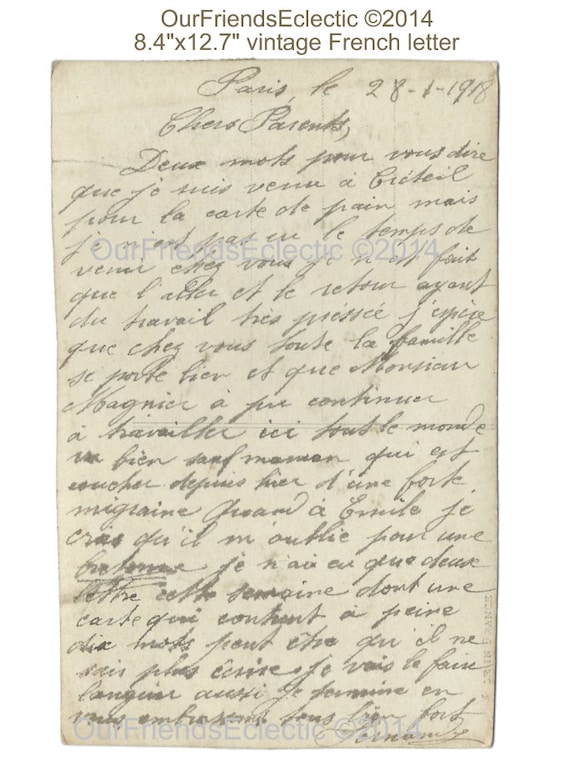 OurFriendsEclectic ©2014
8.4"x12.7" vintage French letter
Paris, le 28-1-1918
Chers Parents,
Deux mots pour vous dire
que je suis venu à Créteil
pour la carte de pain mais
je n'est pas eu le temps de
venir chez vous je n'es fait
que l'aller et le retour ayant
du travail très préssée j'espère
que chez vous toute la famille
se porte bien et que Monsieur
Magnier à pu continuer
à travailler ici tout le monde
va bien sauf maman qui est
coucher depuis hier d'une forte
migraine Quand à Emile je
crois qu'il m'oublie pour une
je n'ai eu que deux
lettre cette semaine dont une
carte qui contient à peine
dix mots peut être qu'il ne
sais plus écrire je vais le faire
languir aussi Je termine en
vous embrassant tous bien fort
Fernand
OurFriendsEclectic ©2014
OurFriendsEclectic ©2014